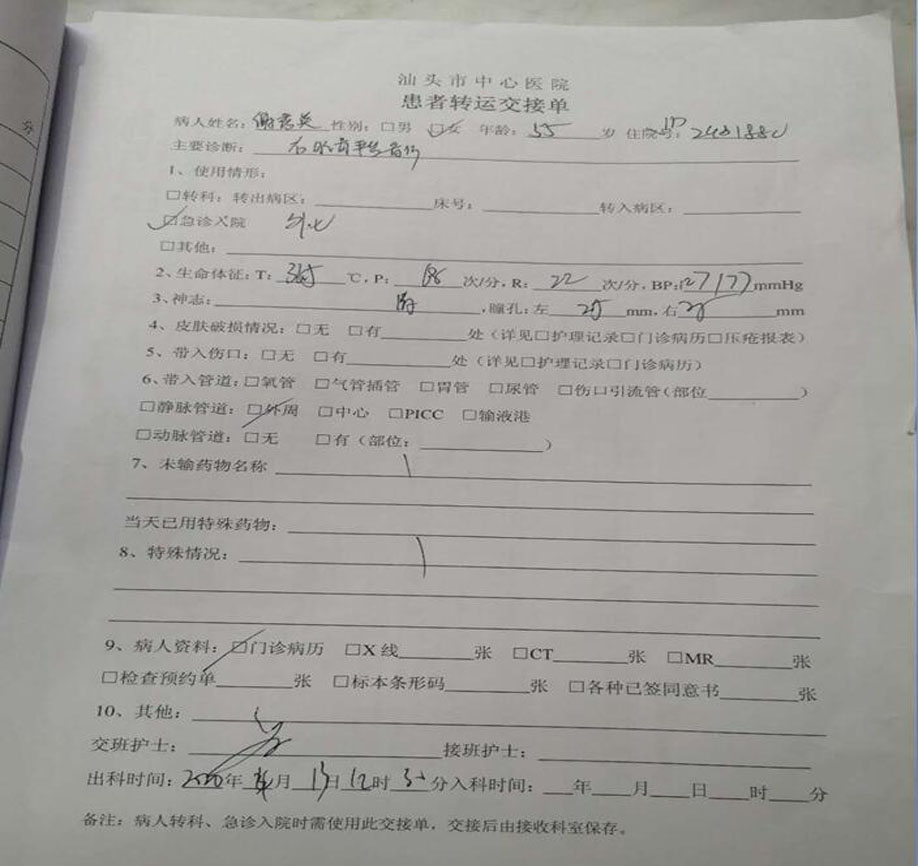 分
汕头市中心医院
患者转运交接单
病人姓名： 性别：□男 □女 年龄：55 岁 住院号：
主要诊断：
1、使用情形：
□转科：转出病区： 床号： 转入病区：
□急诊入院
□其他：
2、生命体征：T：365 ℃，P： 次/分，R：22 次/分，BP：127/77 mmHg
3、神志： ，瞳孔：左 25 mm，右 25 mm
4、皮肤破损情况：□无 □有 处（详见□护理记录□门诊病历□压疮报表）
5、带入伤口：□无 □有 处（详见□护理记录□门诊病历）
6、带入管道：□氧管 □气管插管 □胃管 □尿管 □伤口引流管（部位 ）
□静脉管道：□外周 □中心 □PICC □输液港
□动脉管道：□无 □有（部位： ）
7、未输药物名称
当天已用特殊药物：
8、特殊情况：
9、病人资料：□门诊病历 □X线 张 □CT 张 □MR 张
□检查预约单 张 □标本条形码 张 □各种已签同意书 张
10、其他：
交班护士： 接班护士：
出科时间：2020年 月 13日 12时 分入科时间： 年 月 日 时 分
备注：病人转科、急诊入院时需使用此交接单，交接后由接收科室保存。